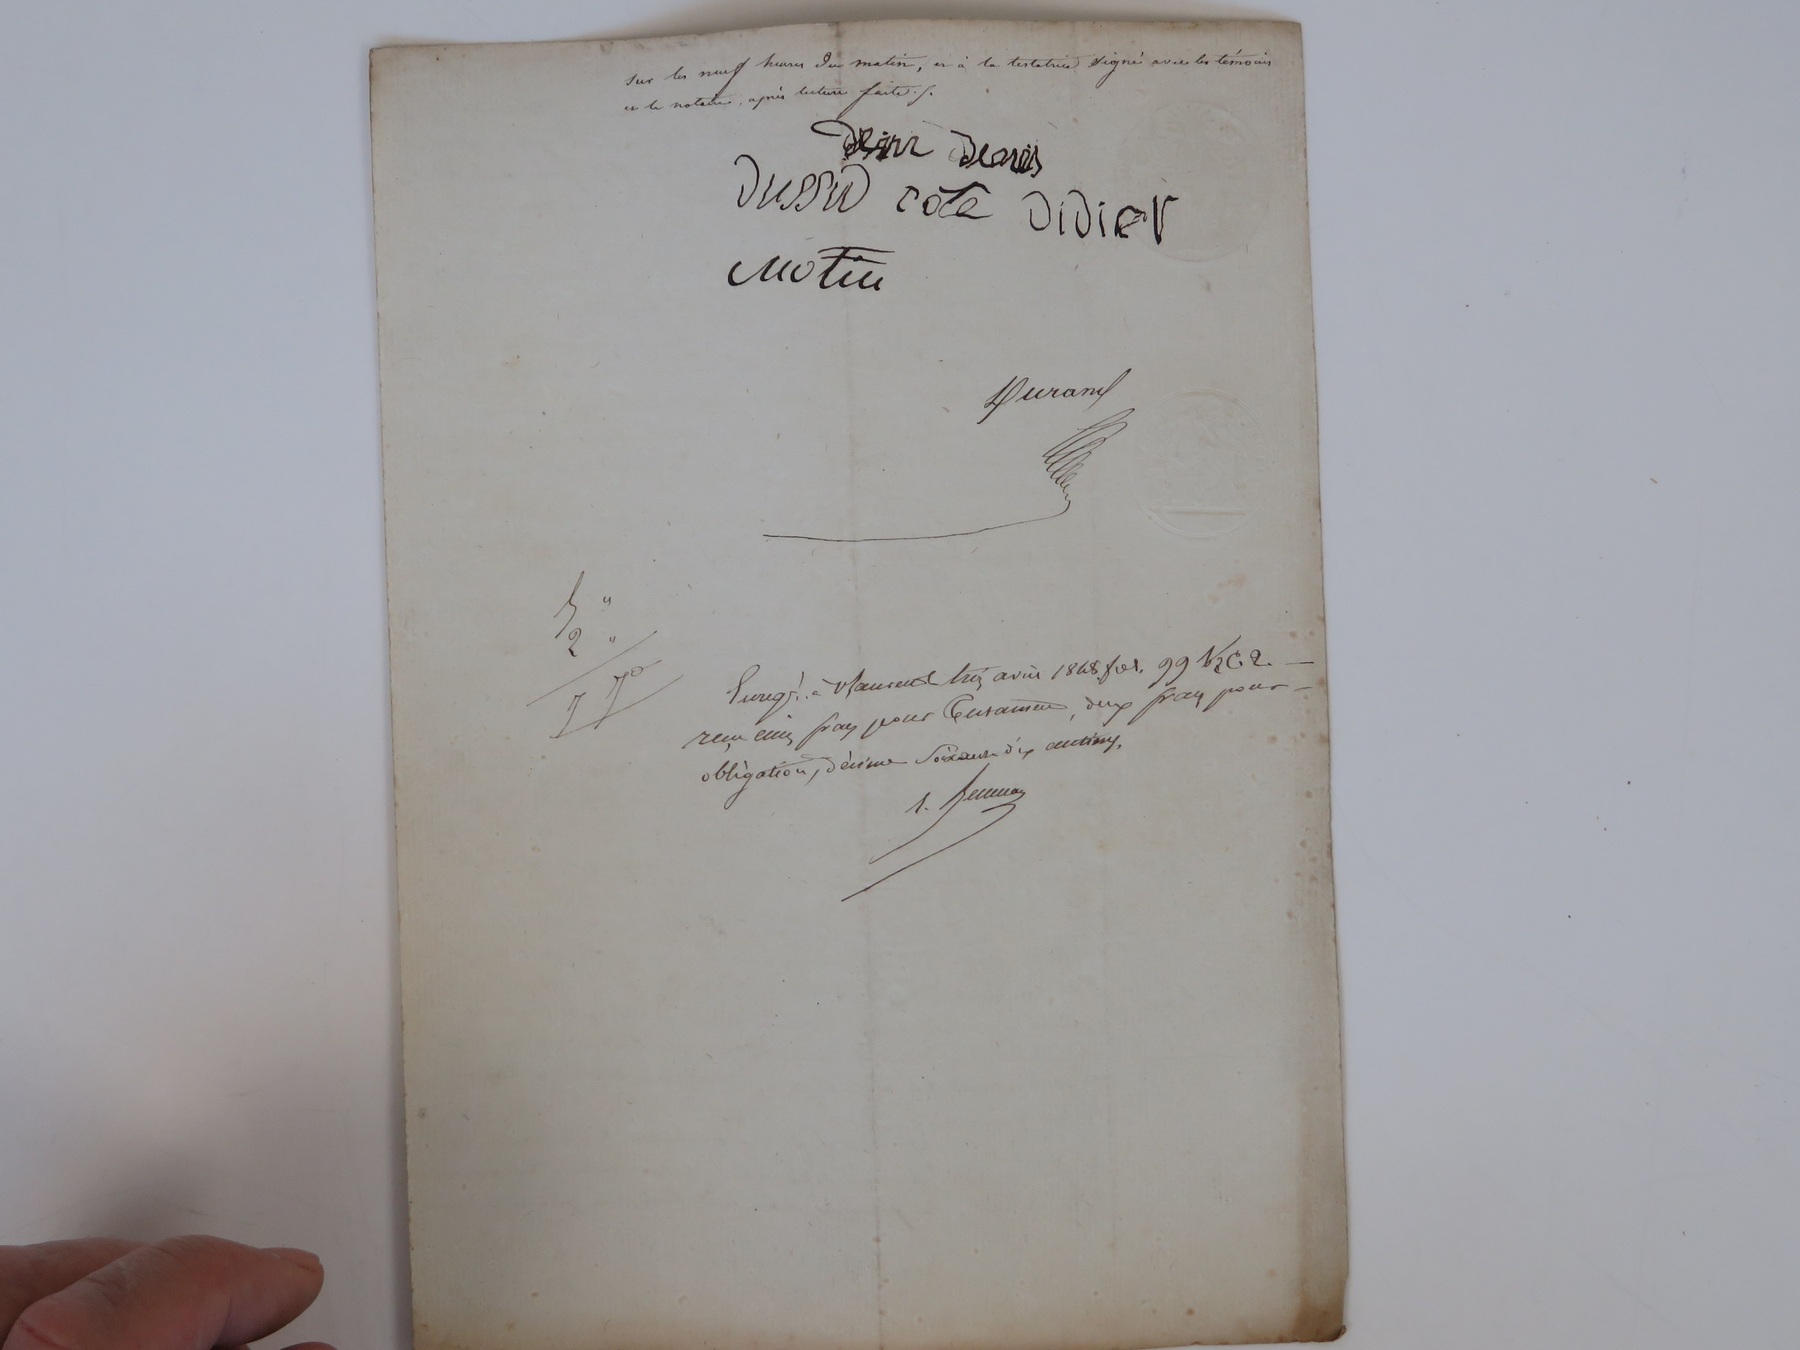 sur les neuf heures du matin, et a la testatrice signé avec les témoins
et le notaire, après lecture faite ./.
Dussud côte Didier
Motin
Durand
5 "
2 "
7 70
Enregé. à St Laurent le avril 1848 fol. 99 Vo C. 2.
reçu cinq francs pour Testament, deux francs pour
obligation, décime soixante dix centimes.